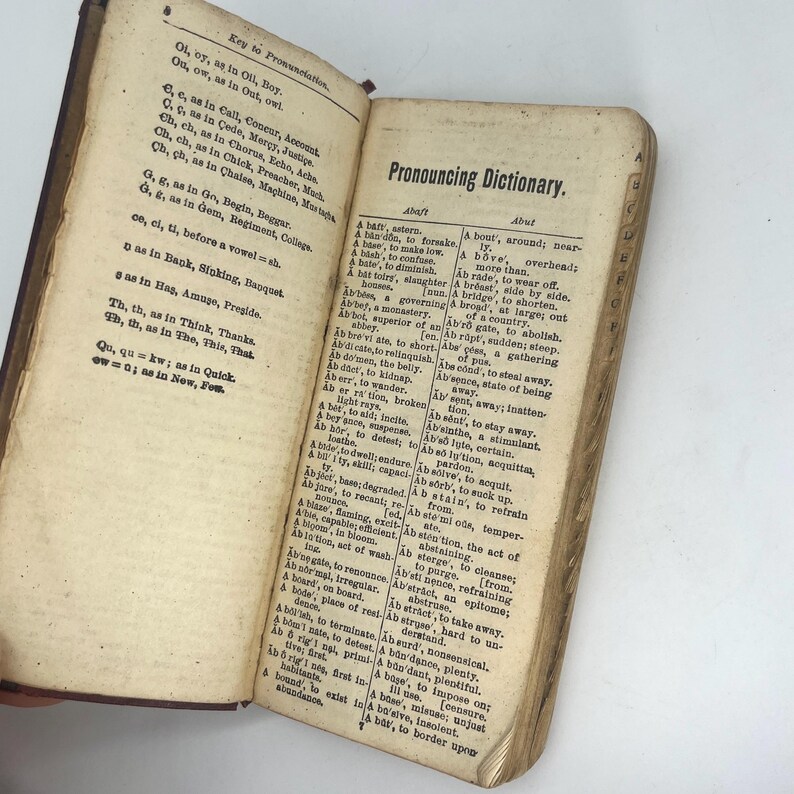 8
Key to Pronunciation.
Oi, oy, as in Oil, Boy.
Ou, ow, as in Out, owl.
Є, є, as in Єall, Єoncur, Aєєount.
Ç, ç, as in Çede, Merçy, Justiçe.
Єh, єh, as in Єhorus, Eєho, Aєhe.
Ch, ch, as in Chick, Preacher, Much.
Çh, çh, as in Çhaise, Maçhine, Mustaçhe.
G, g, as in Go, Begin, Beggar.
Ġ, ġ, as in Ġem, Reġiment, Colleġe.
ce, ci, ti, before a vowel = sh.
ṉ as in Baṉk, Siṉking, Baṉquet.
ş as in Haş, Amuşe, Preşide.
Th, th, as in Think, Thanks.
Th, th, as in The, This, That.
Qu, qu = kw; as in Quick.
ew = ū; as in New, Few.
Pronouncing Dictionary.
Abaft
A bȧft′, astern.
A băn′dȯn, to forsake.
A bāse′, to make low.
A băsh′, to confuse.
A bāte′, to diminish.
A băt toirş′, slaughter
houses. [nun.
Ăb′bĕss, a governing
Ăb′bey, a monastery.
Ăb′bot, superior of an
abbey. [en.
Ăb brē′vi āte, to short-
Ăb′dĭ cāte, to relinquish.
Ăb dō′men, the belly.
Ăb dŭct′, to kidnap.
Ăb err′, to wander.
Ăb er rā′tion, broken
light rays.
A bĕt′, to aid; incite.
A bey′ance, suspense.
Ăb hôr′, to detest; to
loathe.
A bīde′, to dwell; endure.
A bĭl′ĭ ty, skill; capaci-
ty.
Ăb jĕct′, base; degraded.
Ăb jūre′, to recant; re-
nounce. [ed.
A blāze′, flaming, excit-
A′ble, capable; efficient.
A bloom′, in bloom.
Ăb lū′tion, act of wash-
ing.
Ăb′ne gāte, to renounce.
Ăb nôr′mal, irregular.
A board′, on board.
A bōde′, place of resi-
dence.
A bŏl′ish, to terminate.
A bŏm′ĭ nāte, to detest.
Ăb ŏ rĭġ′ĭ nal, primi-
tive; first.
Ăb ŏ rĭġ′ĭ nēş, first in-
habitants.
A bound′, to exist in
abundance.
Abut
A bout′, around; near-
ly.
A bȯve′, overhead;
more than.
Ăb rāde′, to wear off.
A brĕast′, side by side.
A brĭdġe′, to shorten.
A broad′, at large; out
of a country.
Ăb′rŏ gāte, to abolish.
Ăb rŭpt′, sudden; steep.
Ăbs′çĕss, a gathering
of pus.
Ăbs cŏnd′, to steal away.
Ăb′sençe, state of being
away.
Ăb′sent, away; inatten-
tion.
Ăb sĕnt′, to stay away.
Ăb′sĭnthe, a stimulant.
Ăb′sŏ lūte, certain.
Ăb sŏ lū′tion, acquittal,
pardon.
Ăb sŏlve′, to acquit.
Ăb sôrb′, to suck up.
Ăb stāin′, to refrain
from.
Ăb stē′mĭ oŭs, temper-
ate.
Ăb stĕn′tion, the act of
abstaining.
Ăb sterge′, to cleanse;
to purge. [from.
Ăb′stĭ nençe, refraining
Ăb′străct, an epitome;
abstruse.
Ăb străct′, to take away.
Ăb struşe′, hard to un-
derstand.
Ăb surd′, nonsensical.
A bŭn′dançe, plenty.
A bŭn′dant, plentiful.
A būşe′, to impose on;
ill use. [censure.
A būse′, misuse; unjust
A bū′sĭve, insolent.
A bŭt′, to border upon
7
A
B
C
D
E
F
G